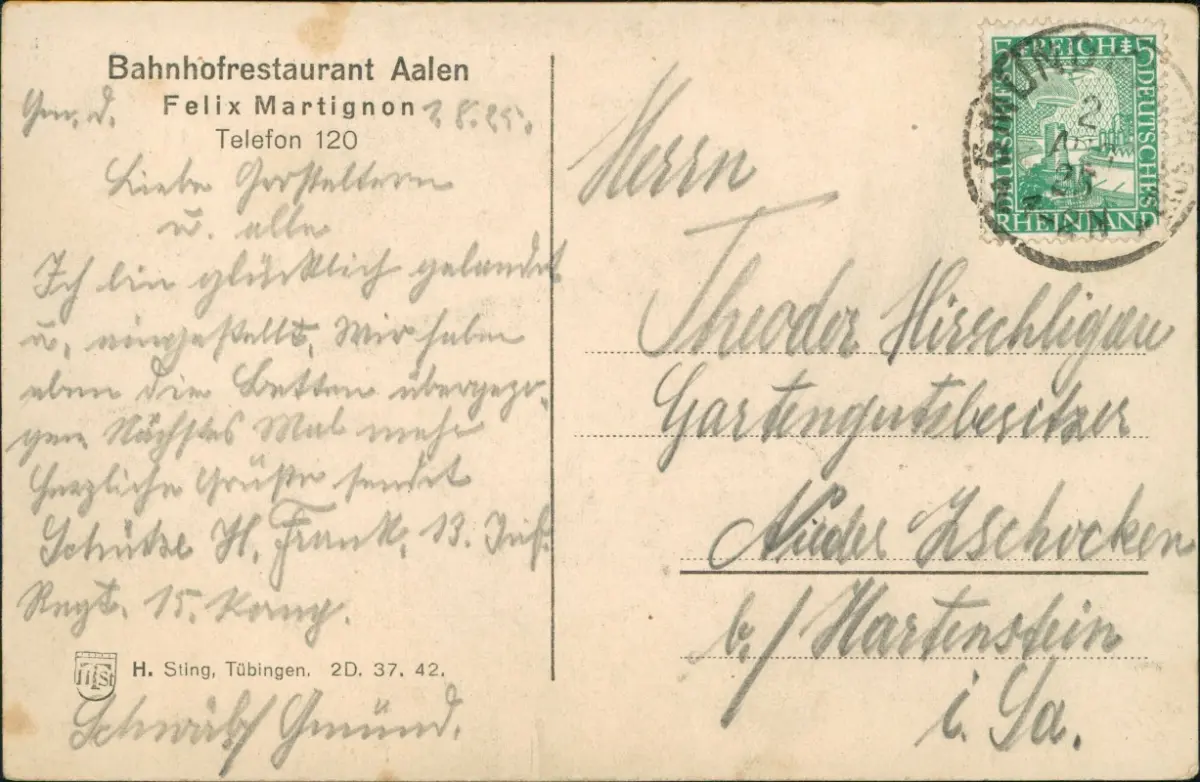 Bahnhofrestaurant Aalen
Felix Martignon
Telefon 120
Gm. d. 2.8.25.
Liebe Großeltern
u. alle
Ich bin glücklich gelandet
u. eingestellt. Wir haben
eben die Betten übergezo-
gen. Nächstes Mal mehr
herzliche Grüße sendet
Schütze H. Frank, 13. Inf.
Regt. 15. Komp.
H. Sting, Tübingen. 2D. 37. 42.
Schwäb/ Gmünd.
5 REICH 5
DEUTSCHES
RHEINLAND
2
25
Herrn
Theodor Hirschligau
Gartengutsbesitzer
Nieder Zschocken
b./ Hartenstein
i. Sa.